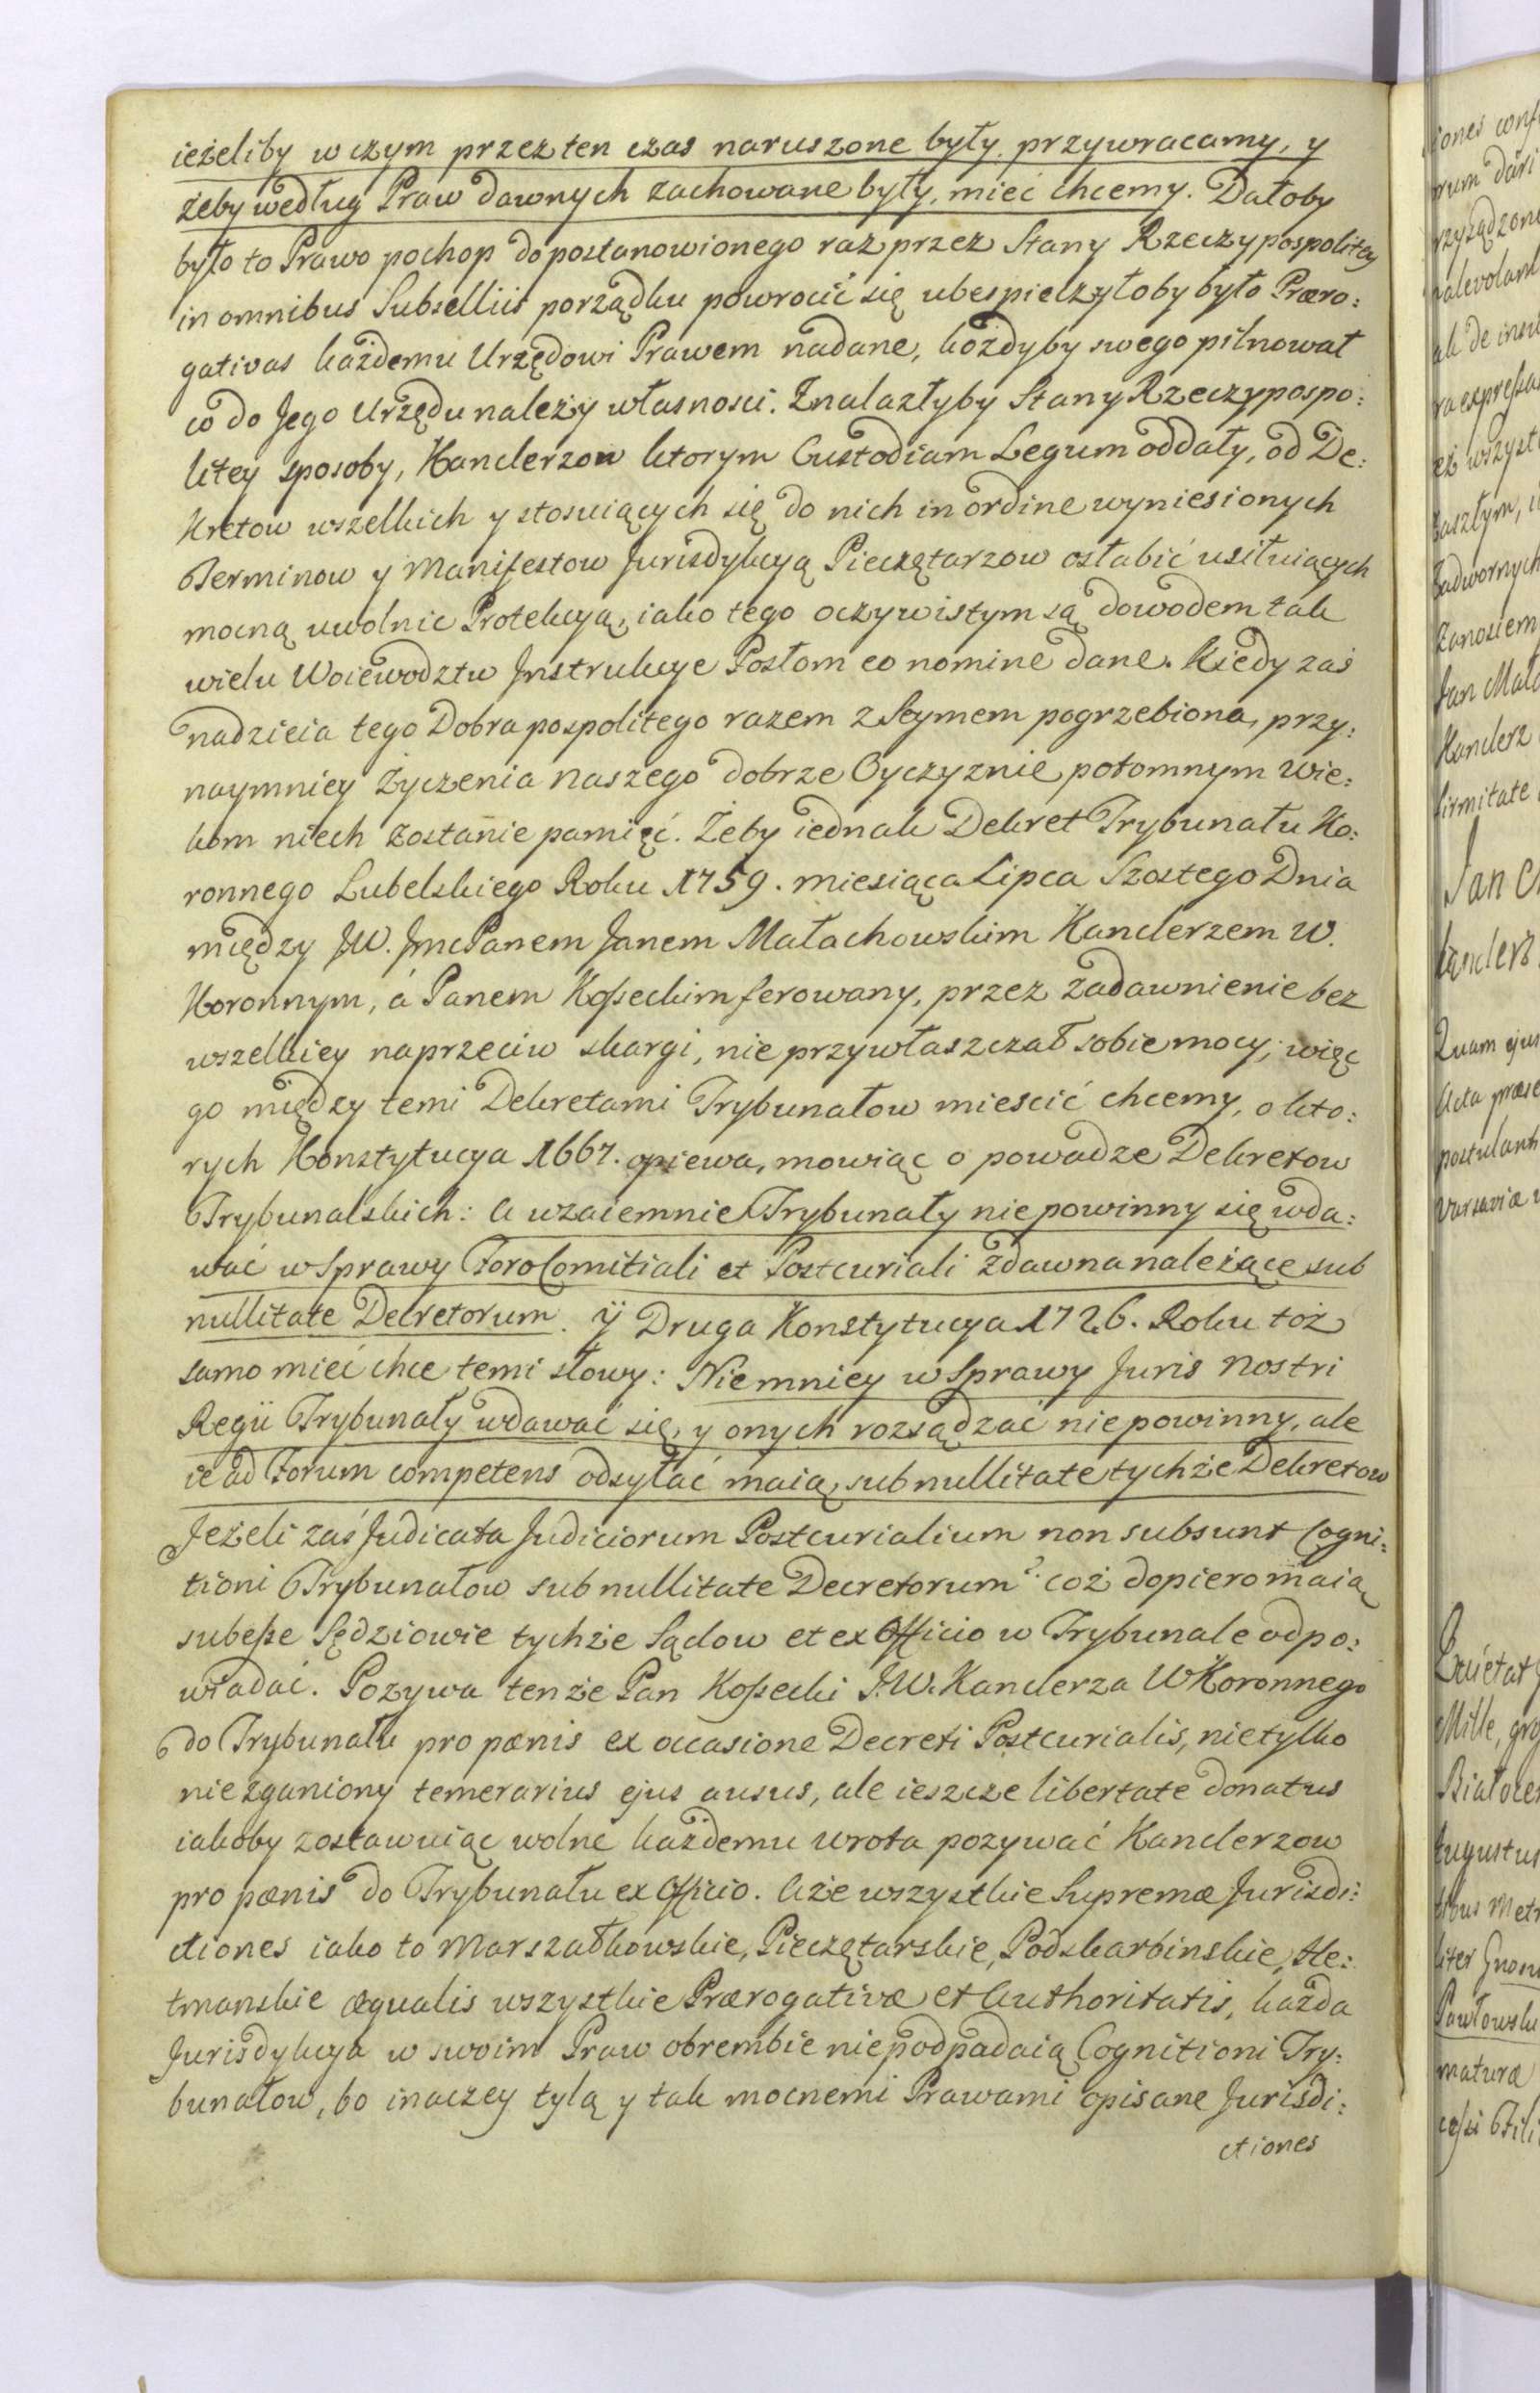 ieżeliby w czym przez ten czas naruszone były przywracamy, y
żeby według Praw dawnych zachowane były, mieć chcemy. Dałoby
było to Prawo pochop do postanowionego raz przez Stany Rzeczypospolitey
in omnibus Subselliis porządku powrocić się ubespieczyłoby było Præro:
gativas każdemu Urzędowi Prawem nadane, każdyby swego pilnował
co do Jego Urzędu należy własnosci. Znalazłyby Stany Rzeczypospo:
litey sposoby, Kanclerzow ktorym Custodiam Legum oddały, od De:
kretow wszelkich y stosuiących się do nich in ordine wyniesionych
Terminow y Manifestow Jurisdykcyą Pieczętarzow osłabić usiłuiących
mocną uwolnic Protekcyą, iako tego oczywistym są dowodem tak
wielu Woiewodztw Jnstrukcye Posłom eo nomine dane. Kiedy zaś
nadzieia tego Dobra pospolitego razem z Seymem pogrzebiona, przy:
naymniey Życzenia naszego dobrze Oyczyznie potomnym Wie:
kom niech zostanie pamięć. Żeby iednak Dekret Trybunału Ko:
ronnego Lubelskiego Roku 1759. miesiąca Lipca Szostego Dnia
między JW. JmcPanem Janem Małachowskim Kanclerzem W.
Koronnym, á Panem Kosseckim ferowany, przez zadawnienie bez
wszelkiey naprzeciw skargi, nie przywłaszczał sobie mocy, więc
go między temi Dekretami Trybunałow miescić chcemy, o kto:
rych Konstytucya 1667. opiewa, mowiąc o powadze Dekretow
Trybunalskich: A wzaiemnie Trybunały nie powinny się wda:
wać w Sprawy Foro Comitiali et Postcuriali zdawna należące sub
nullitate Decretorum. ÿ Druga Konstytucya 1726. Roku toż
samo mieć chce temi słowy: Niemniey w Sprawy Juris Nostri
Regii Trybunały wdawać się, y onych rozsądzać nie powinny, ale
ie ad Forum competens odsyłać maią, sub nullitate tychże Dekretow
Jeżeli zaś Judicata Judiciorum Postcurialium non subsunt Cogni:
tioni Trybunałow sub nullitate Decretorum? coż dopiero maią
subesse Sędziowie tychże Sądow et ex Officio w Trybunale odpo:
wiadać. Pozywa tenże Pan Kossecki J.W. Kanclerza W Koronnego
do Trybunału pro pœnis ex occasione Decreti Postcurialis, nietylko
niezganiony temerarius ejus ausus, ale ieszcze libertate donatus
iakoby zostawuiąc wolne każdemu wrota pozywać Kanclerzow
pro pœnis do Trybunału ex Officio. Aże wszystkie Supremæ Jurisdi:
ctiones iako to Marszałkowskie, Pieczętarskie, Podskarbinskie, He:
tmanskie æqualis wszystkie Prærogativæ et Authoritatis, każda
Jurisdykcya w swoim Praw obrembie niepodpadaią Cognitioni Try:
bunałow, bo inaczey tylą y tak mocnemi Prawami opisane Jurisdi:
ctiones